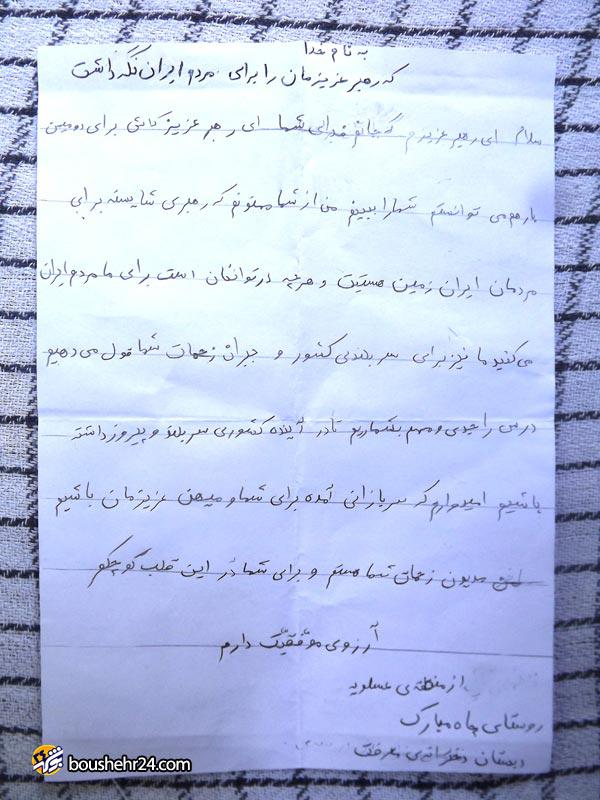 به نام خدا
که رهبر عزیزمان را برای مردم ایران نگه داشت
سلام ای رهبر عزیزم که جانم فدای شما ای رهبر عزیز کاش برای دومین
بار هم می توانستم شما را ببینم من از شما ممنونم که رهبری شایسته برای
مردمان ایران زمین هستیت و هرچه در توانتان است برای ما مردم ایران
می کنید ما نیز برای سربلندی کشور و جبران زحمات شما قول می دهیم
درس را جدی و مهم بشماریم تا در آینده کشوری سربلند و پیروز داشته
باشیم امیدوارم که سربازانی آمده برای شما و میهن عزیزمان باشیم
مدیون زحمات شما هستم و برای شما در این قلب کوچکم
آرزوی موفقیّت دارم
از منطقه ی عسلویه
روستای چاه مبارک
دبستان دخترانه ی معرفت
boushehr24.com